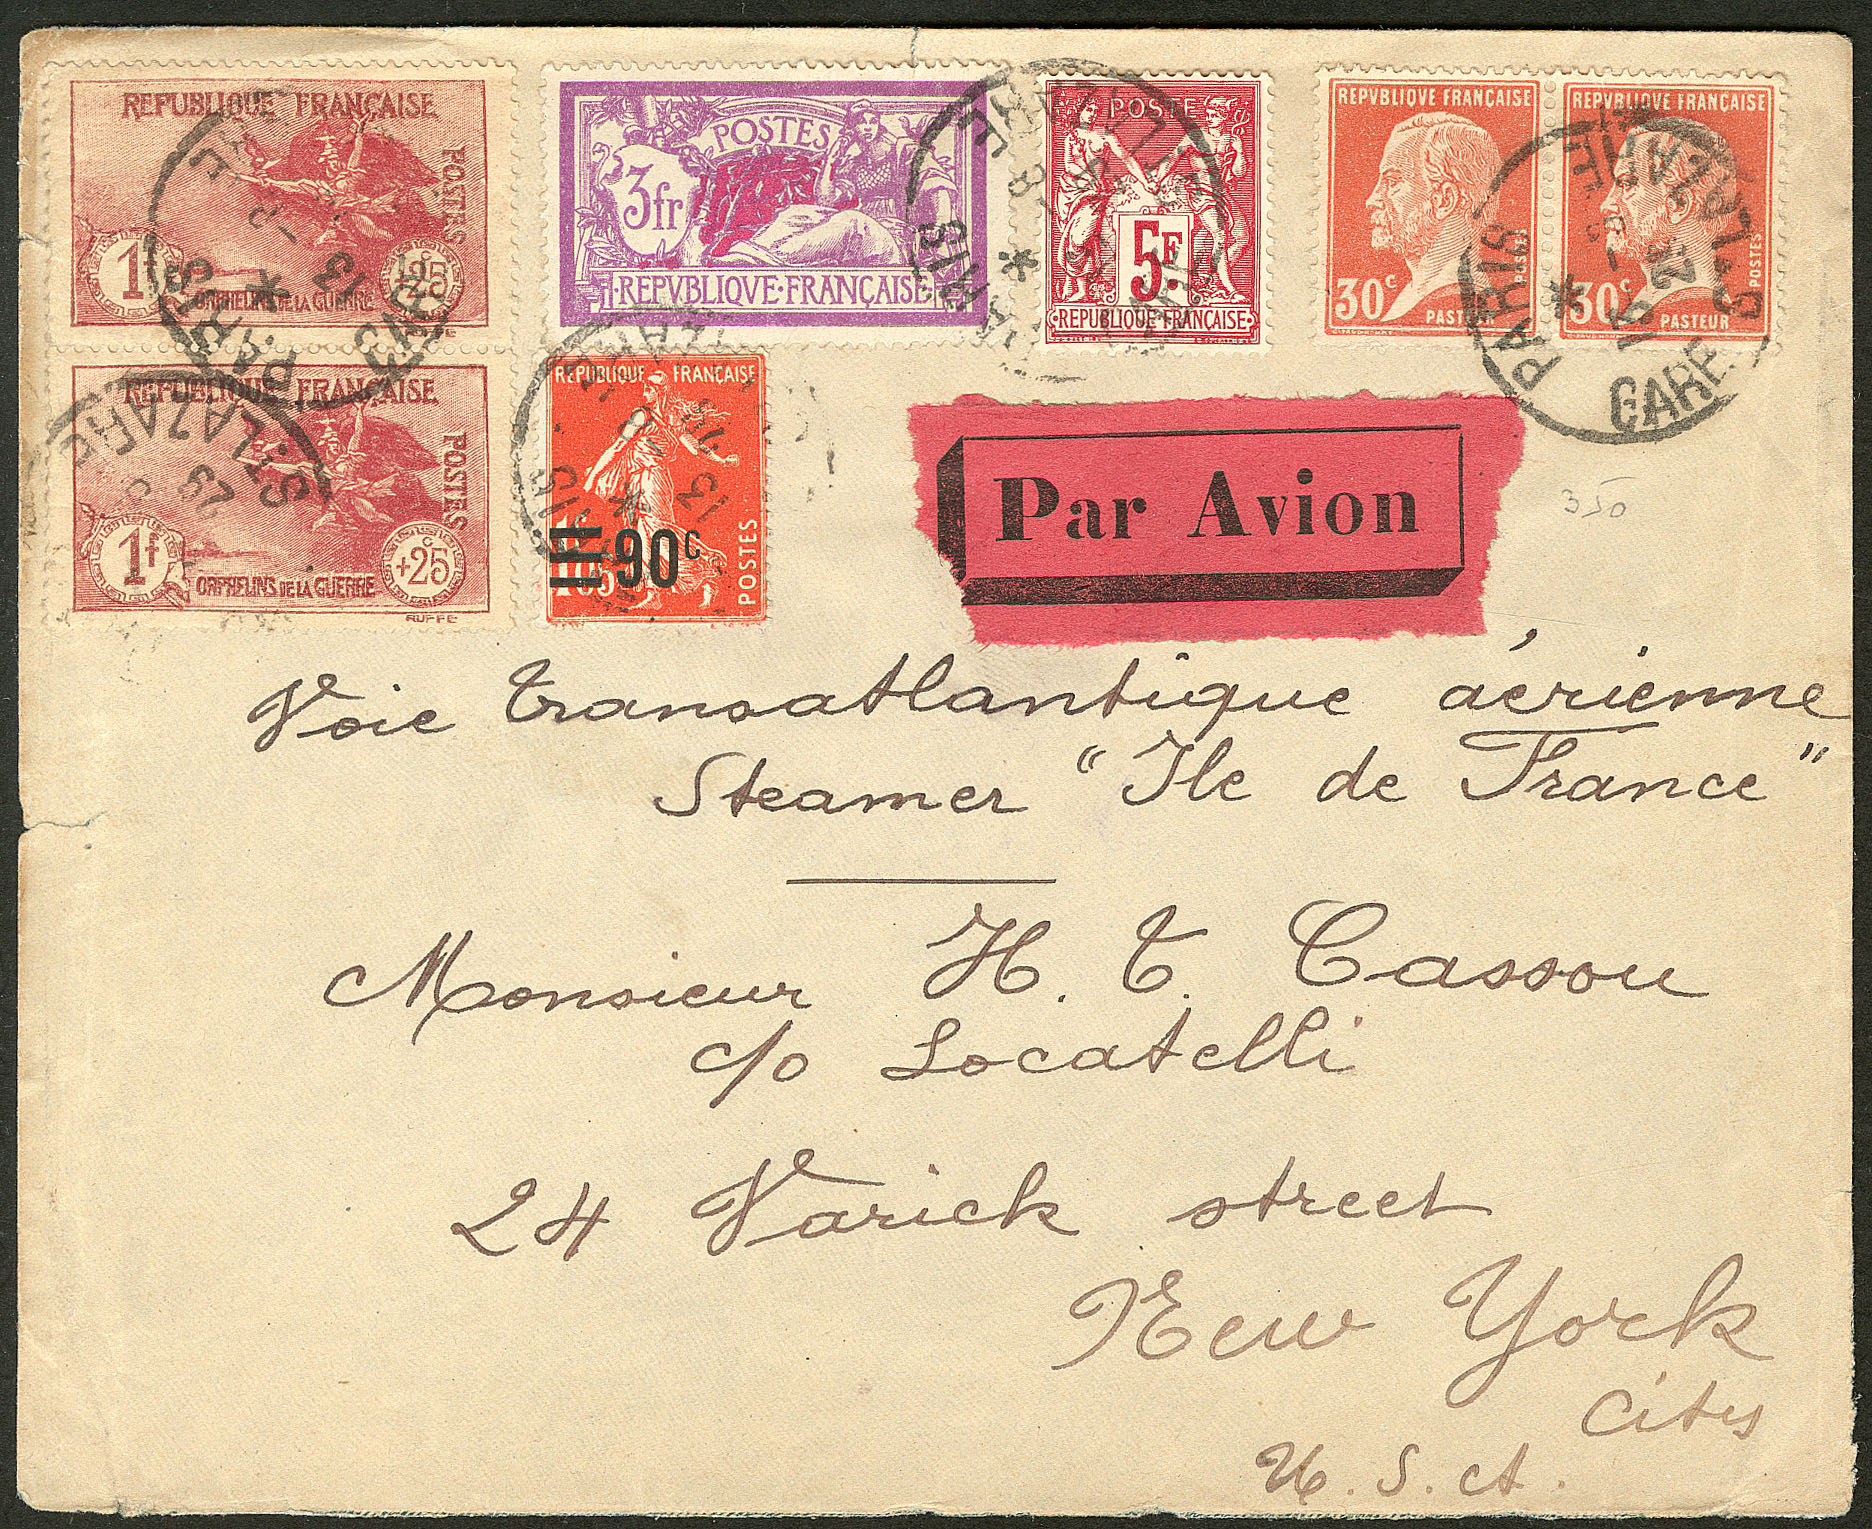 REPUBLIQUE FRANÇAISE
POSTES
1f
+25c
ORPHELINS DE LA GUERRE
RUFFE
REPUBLIQUE FRANÇAISE
POSTES
1f
+25c
ORPHELINS DE LA GUERRE
RUFFE
POSTES
3fr
·REPVBLIQVE·FRANÇAISE·
POSTE
5F.
·REPUBLIQUE·FRANÇAISE·
REPVBLIQVE FRANÇAISE
POSTES
30c
PASTEUR
REPVBLIQVE FRANÇAISE
POSTES
30c
PASTEUR
REPUBLIQUE FRANÇAISE
1f05
90c
POSTES
PARIS
GARE ST LAZARE
PARIS
ST LAZARE
PARIS
PARIS
GARE ST LAZARE
Par Avion
350
Voie transatlantique aérienne
Steamer "Ile de France"
Monsieur H. T. Cassou
c/o Locatelli
24 Varick street
New York
City
U. S. A.